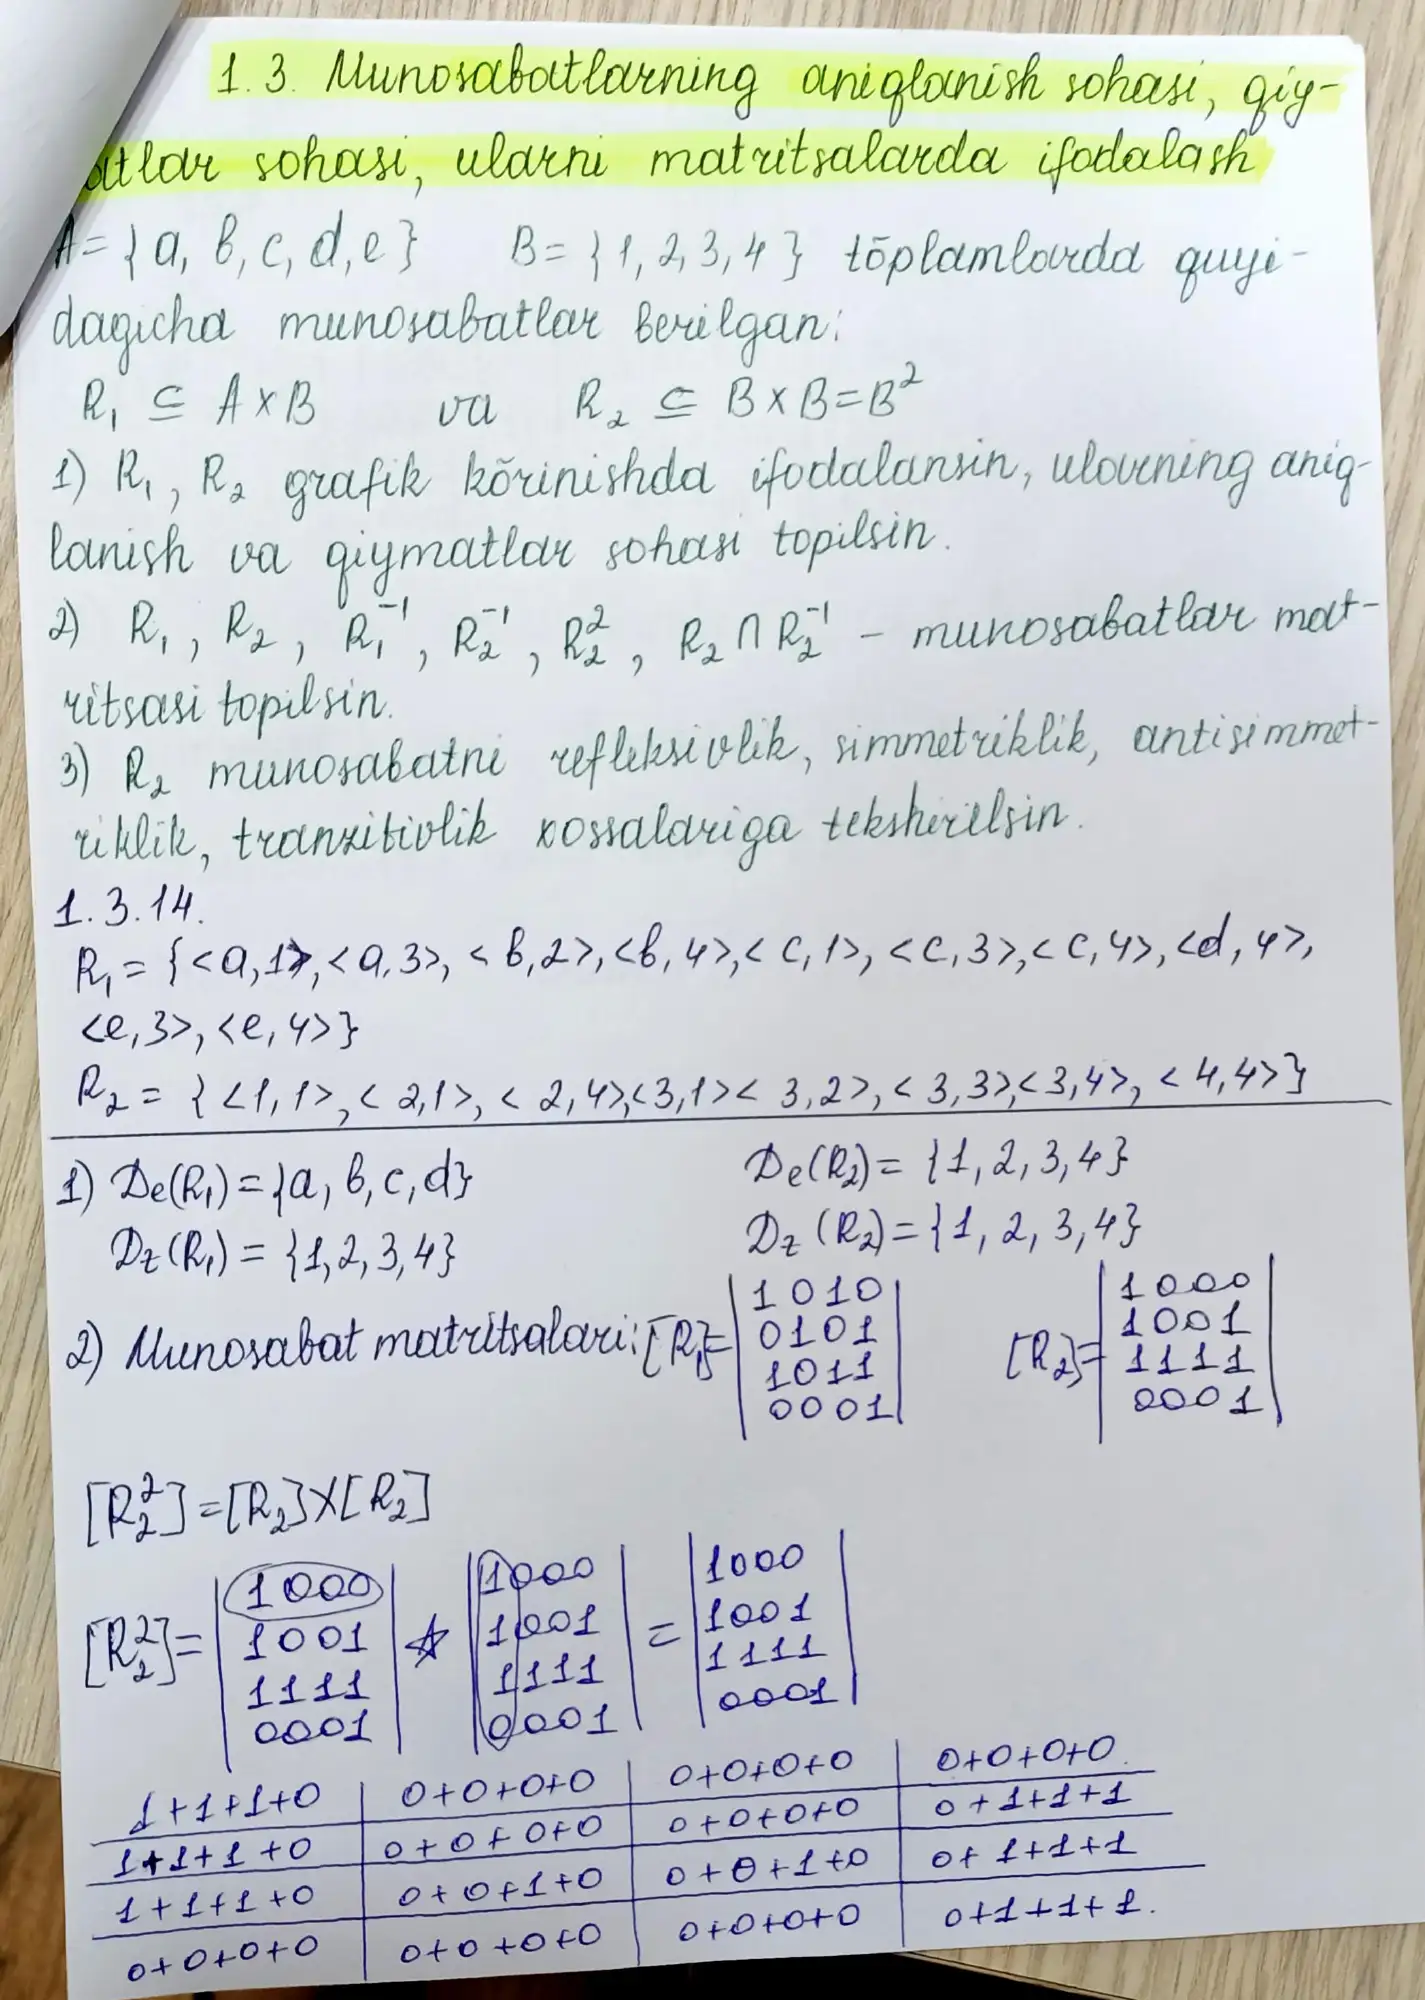 1.3. Munosabatlarning aniqlanish sohasi, qiy-
atlar sohasi, ularni matritsalarda ifodalash
A={a, b, c, d, e} B={1, 2, 3, 4} tōplamlarda quyi-
dagicha munosabatlar berilgan:
R₁ ⊆ A×B va R₂ ⊆ B×B=B²
1) R₁, R₂ grafik kōrinishda ifodalansin, ularning aniq-
lanish va qiymatlar sohasi topilsin.
2) R₁, R₂, R₁⁻¹, R₂⁻¹, R₂², R₂∩R₂⁻¹ – munosabatlar mat-
ritsasi topilsin.
3) R₂ munosabatni refleksivlik, simmetriklik, antisimmet-
riklik, tranzitivlik xossalariga tekshirilsin.
1.3.14.
R₁={<a,1>,<a,3>,<b,2>,<b,4>,<c,1>,<c,3>,<c,4>,<d,4>,
<e,3>,<e,4>}
R₂={<1,1>,<2,1>,<2,4>,<3,1><3,2>,<3,3>,<3,4>,<4,4>}
1) De(R₁)={a, b, c, d} De(R₂)={1, 2, 3, 4}
Dz(R₁)={1,2,3,4} Dz(R₂)={1, 2, 3,4}
2) Munosabat matritsalari: [R₁]= |1 0 1 0| [R₂]= |1 0 0 0|
|0 1 0 1| |1 0 0 1|
|1 0 1 1| |1 1 1 1|
|0 0 0 1| |0 0 0 1|
[R₂²]=[R₂]X[R₂]
[R₂²]= |1 0 0 0| ☆ |1 0 0 0| = |1 0 0 0|
|1 0 0 1| |1 0 0 1| |1 0 0 1|
|1 1 1 1| |1 1 1 1| |1 1 1 1|
|0 0 0 1| |0 0 0 1| |0 0 0 1|
1+1+1+0 | 0+0+0+0 | 0+0+0+0 | 0+0+0+0.
1+1+1+0 | 0+0+0+0 | 0+0+0+0 | 0+1+1+1
1+1+1+0 | 0+0+1+0 | 0+0+1+0 | 0+1+1+1
0+0+0+0 | 0+0+0+0 | 0+0+0+0 | 0+1+1+1.